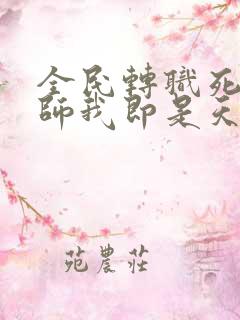 全民轉職死
師我即是天
苑農莊